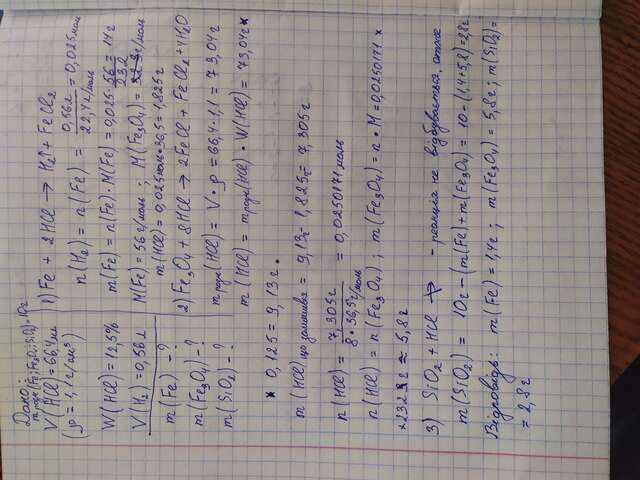 Дано:
m порс (Fe; Fe3O4; SiO2) = 10г
V(HCl) = 66,4 мл
(ρ = 1,1 г/см³)
W(HCl) = 12,5%
V(H2) = 0,56 л
m (Fe) - ?
m(Fe3O4) - ?
m(SiO2) - ?
1) Fe + 2HCl → H2↑ + FeCl2
n(H2) = n(Fe) = 0,56л / 22,4 л/моль = 0,025 моль
m(Fe) = n(Fe) · M(Fe) = 0,025 · 56 = 1,4 г
M(Fe) = 56 г/моль ; M(Fe3O4) = 232 г/моль
m(HCl) = 0,025 моль · 36,5 = 1,825 г
2) Fe3O4 + 8HCl → 2FeCl + FeCl2 + 4H2O
m розч(HCl) = V · ρ = 66,4 · 1,1 = 73,04 г
m (HCl) = m розч(HCl) · W(HCl) = 73,04г ×
× 0,125 = 9,13 г.
m (HCl) що залишився = 9,13 - 1,825г = 7,305г
n (HCl) = 7,305г / 8 · 36,5 г/моль = 0,0250171 моль
n (HCl) = n (Fe3O4) ; m (Fe3O4) = n · M = 0,0250171 ×
× 232 г ≈ 5,8 г
3) SiO2 + HCl ↛ - реакція не відбувається, отже
m(SiO2) = 10г - (m(Fe) + m(Fe3O4) = 10 - (1,4 + 5,8) = 2,8г
Відповідь: m(Fe) = 1,4г ; m(Fe3O4) = 5,8г ; m(SiO2) =
= 2,8 г